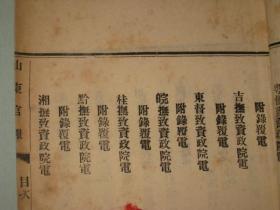 附錄覆電
吉撫致資政院電
附錄覆電
東督致資政院電
附錄覆電
皖撫致資政院電
附錄覆電
桂撫致資政院電
附錄覆電
黔撫致資政院電
附錄覆電
湘撫致資政院電
山東官報
目次